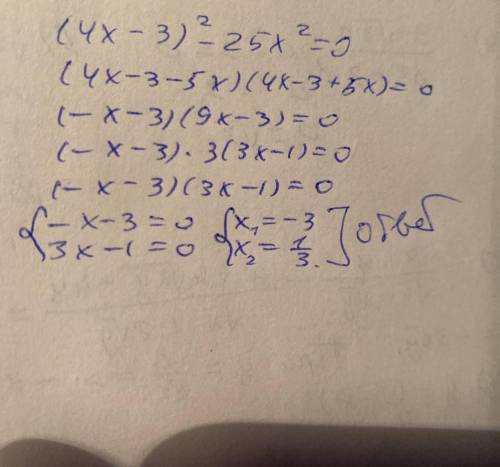 (4x-3)²-25x²=0
(4x-3-5x)(4x-3+5x)=0
(-x-3)(9x-3)=0
(-x-3)·3(3x-1)=0
(-x-3)(3x-1)=0
{-x-3=0 {x₁=-3
3x-1=0 x₂=1/3. ] ответ